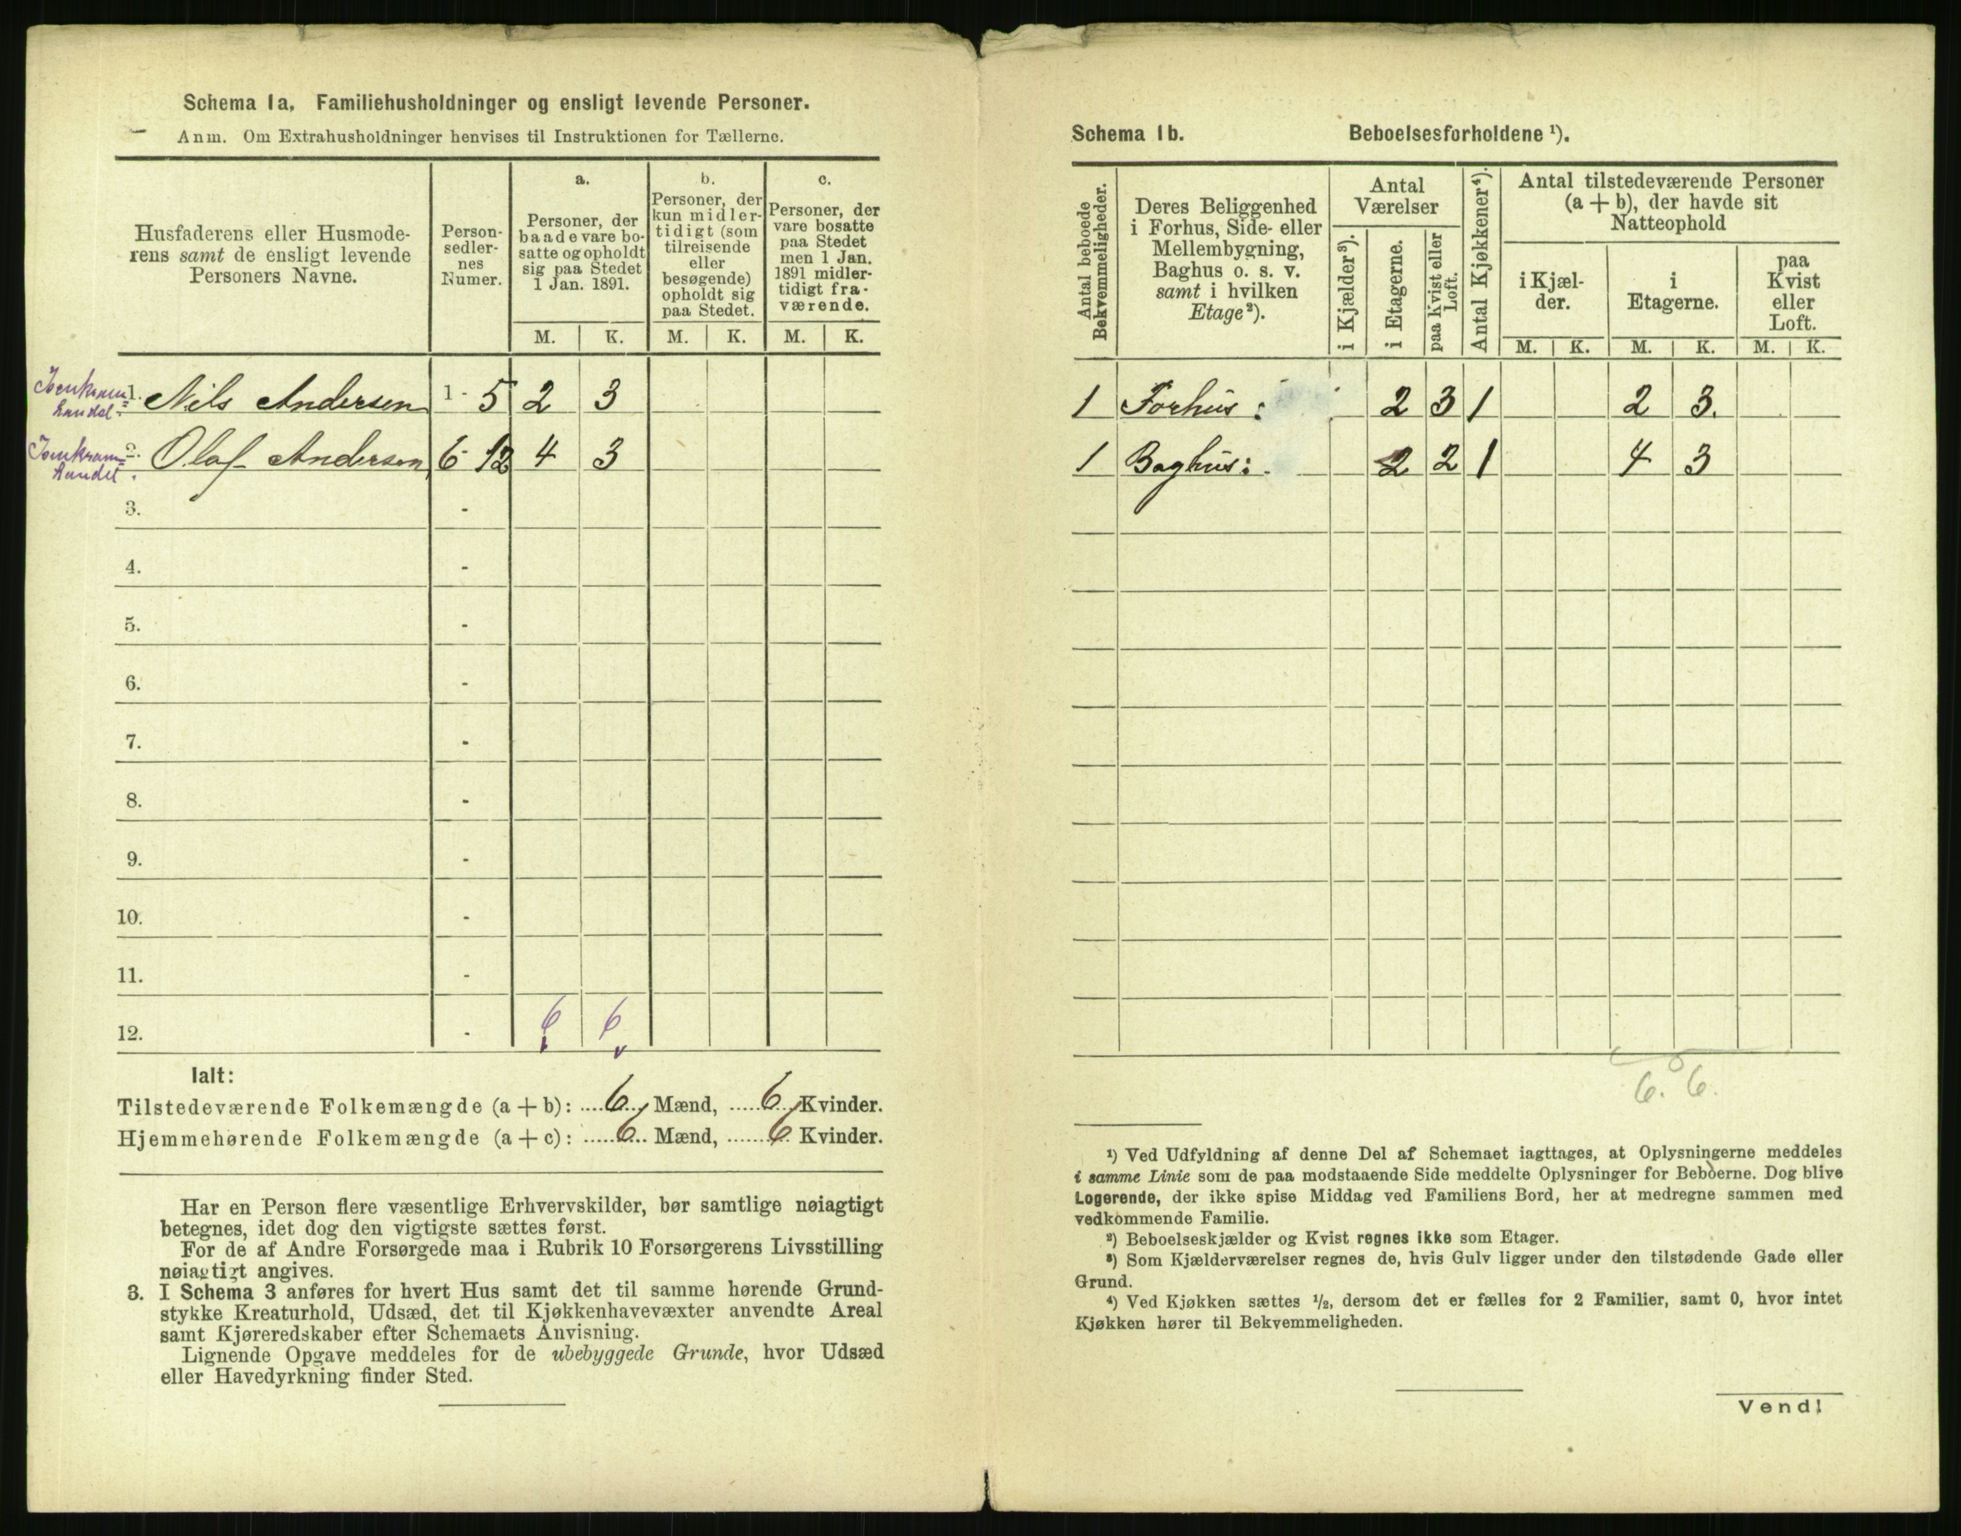 Schema 1a. Familiehusholdninger og ensligt levende Personer.
Anm. Om Extrahusholdninger henvises til Instruktionen for Tællerne.
Husfaderens eller Husmode-
rens samt de ensligt levende
Personers Navne.
Person-
sedler-
nes
Numer.
a.
Personer, der
baade vare bo-
satte og opholdt
sig paa Stedet
1 Jan. 1891.
b.
Personer, der
kun midler-
tidigt (som
tilreisende
eller
besøgende)
opholdt sig
paa Stedet.
c.
Personer, der
vare bosatte
paa Stedet
men 1 Jan.
1891 midler-
tidigt fra-
værende.
M. K. M. K. M. K.
1. Nils Andersen 1 - 5 2 3
2. Olaf Andersen 6 - 12 4 3
3. -
4. -
5. -
6. -
7. -
8. -
9. -
10. -
11. -
12. - 6 6
Ialt:
Tilstedeværende Folkemængde (a + b): 6 Mænd, 6 Kvinder.
Hjemmehørende Folkemængde (a + c): 6 Mænd, 6 Kvinder.
Har en Person flere væsentlige Erhvervskilder, bør samtlige nøiagtigt
betegnes, idet dog den vigtigste sættes først.
For de af Andre Forsørgede maa i Rubrik 10 Forsørgerens Livsstilling
nøiagtigt angives.
3. I Schema 3 anføres for hvert Hus samt det til samme hørende Grund-
stykke Kreaturhold, Udsæd, det til Kjøkkenhavevæxter anvendte Areal
samt Kjøreredskaber efter Schemaets Anvisning.
Lignende Opgave meddeles for de ubebyggede Grunde, hvor Udsæd
eller Havedyrkning finder Sted.
Schema 1b. Beboelsesforholdene ¹).
Antal beboede
Bekvemmeligheder.
Deres Beliggenhed
i Forhus, Side- eller
Mellembygning,
Baghus o. s. v.
samt i hvilken
Etage ²).
Antal
Værelser
i Kjælder ³).
i Etagerne.
paa Kvist eller
Loft.
Antal Kjøkkener ⁴).
Antal tilstedeværende Personer
(a + b), der havde sit
Natteophold
i Kjæl-
der.
i
Etagerne.
paa
Kvist
eller
Loft.
M. K. M. K. M. K.
1 Forhus: 2 3 1 2 3.
1 Baghus: 2 2 1 4 3
6. 6.
¹) Ved Udfyldning af denne Del af Schemaet iagttages, at Oplysningerne meddeles
i samme Linie som de paa modstaaende Side meddelte Oplysninger for Beboerne. Dog blive
Logerende, der ikke spise Middag ved Familiens Bord, her at medregne sammen med
vedkommende Familie.
²) Beboelseskjælder og Kvist regnes ikke som Etager.
³) Som Kjælderværelser regnes de, hvis Gulv ligger under den tilstødende Gade eller
Grund.
⁴) Ved Kjøkken sættes ½, dersom det er fælles for 2 Familier, samt 0, hvor intet
Kjøkken hører til Bekvemmeligheden.
Vend!